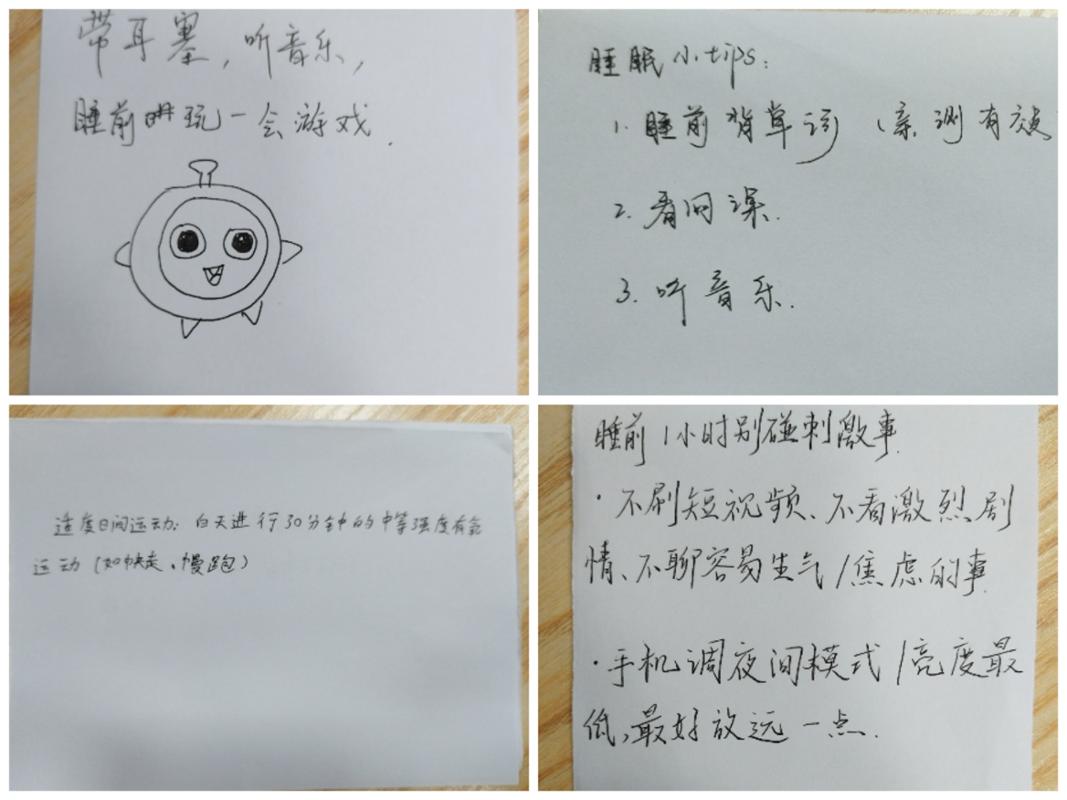 带耳塞，听音乐，
睡前哄玩一会游戏.
睡眠小tips:
1. 睡前背单词 (亲测有效
2. 看网课.
3. 听音乐.
适度日间运动: 白天进行30分钟的中等强度有氧
运动 (如快走、慢跑)
睡前1小时别碰刺激事.
· 不刷短视频、不看激烈剧
情、不聊容易生气/焦虑的事.
· 手机调夜间模式/亮度最
低, 最好放远一点.